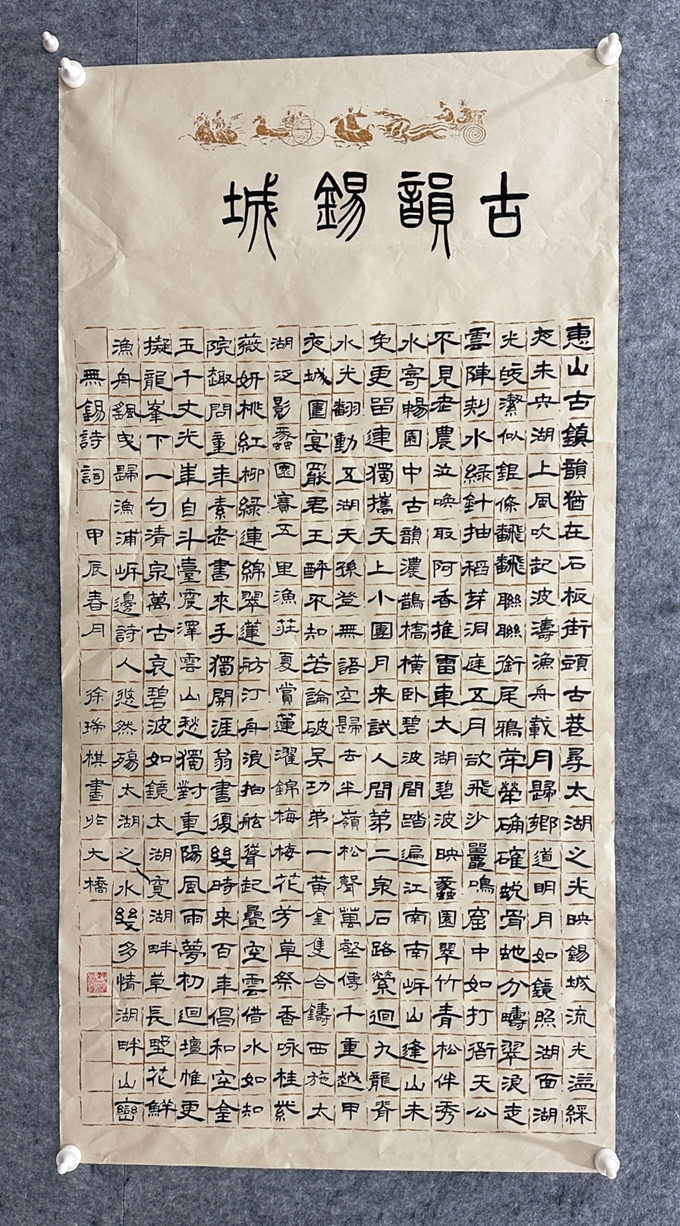 古韻錫城
惠山古鎮韻猶在石板街頭古巷尋太湖之光映錫城流光溢綵
夜未央湖上風吹起波濤漁舟載月歸鄉道明月如鏡照湖面湖
光皎潔似銀條飜飜聯聯銜尾鴉犖犖确確蛻骨蛇分疇翠浪走
雲陣刺水綠針抽稻芽洞庭五月欲飛沙鼉鳴窟中如打衙天公
不見老農泣喚取阿香推雷車太湖碧波映蠡園翠竹青松伴秀
水寄暢園中古韻濃鵲橋橫臥碧波間踏遍江南南岸山逢山未
免更留連獨攜天上小團月來試人間第二泉石路縈迴九龍脊
水光翻動五湖天孫登無語空歸去半嶺松聲萬壑傳千重越甲
夜城圍宴罷君王醉不知若論破吳功弟一黃金隻合鑄西施太
湖泛影蠡園賽五里漁莊夏賞蓮濯錦梅梅花芳草祭香咏桂紫
薇妍桃紅柳綠連綿翠蓮舫汀舟浪拍舷聳起疊空雲借水如知
院趣問童年素老書來手獨開涯翁書復幾時來百年倡和空金
玉千丈光年自斗臺震澤雲山愁獨對重陽風雨夢初迴壇惟更
擬龍峯下一勺清泉萬古哀碧波如鏡太湖寬湖畔草長野花鮮
漁舟飄曳歸漁浦岸邊詩人悠然殤太湖之水幾多情湖畔山巒
無錫詩詞 甲辰春月 徐瑞棋書於大橋